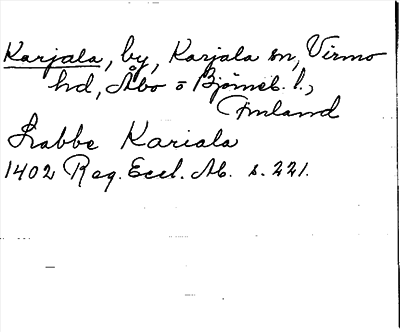 Karjala, by, Karjala sn, Virmo
hd, Åbo o Björneb. l.,
Finland
Labbe Kariala
1402 Reg. Eccl. Ab. s. 221.